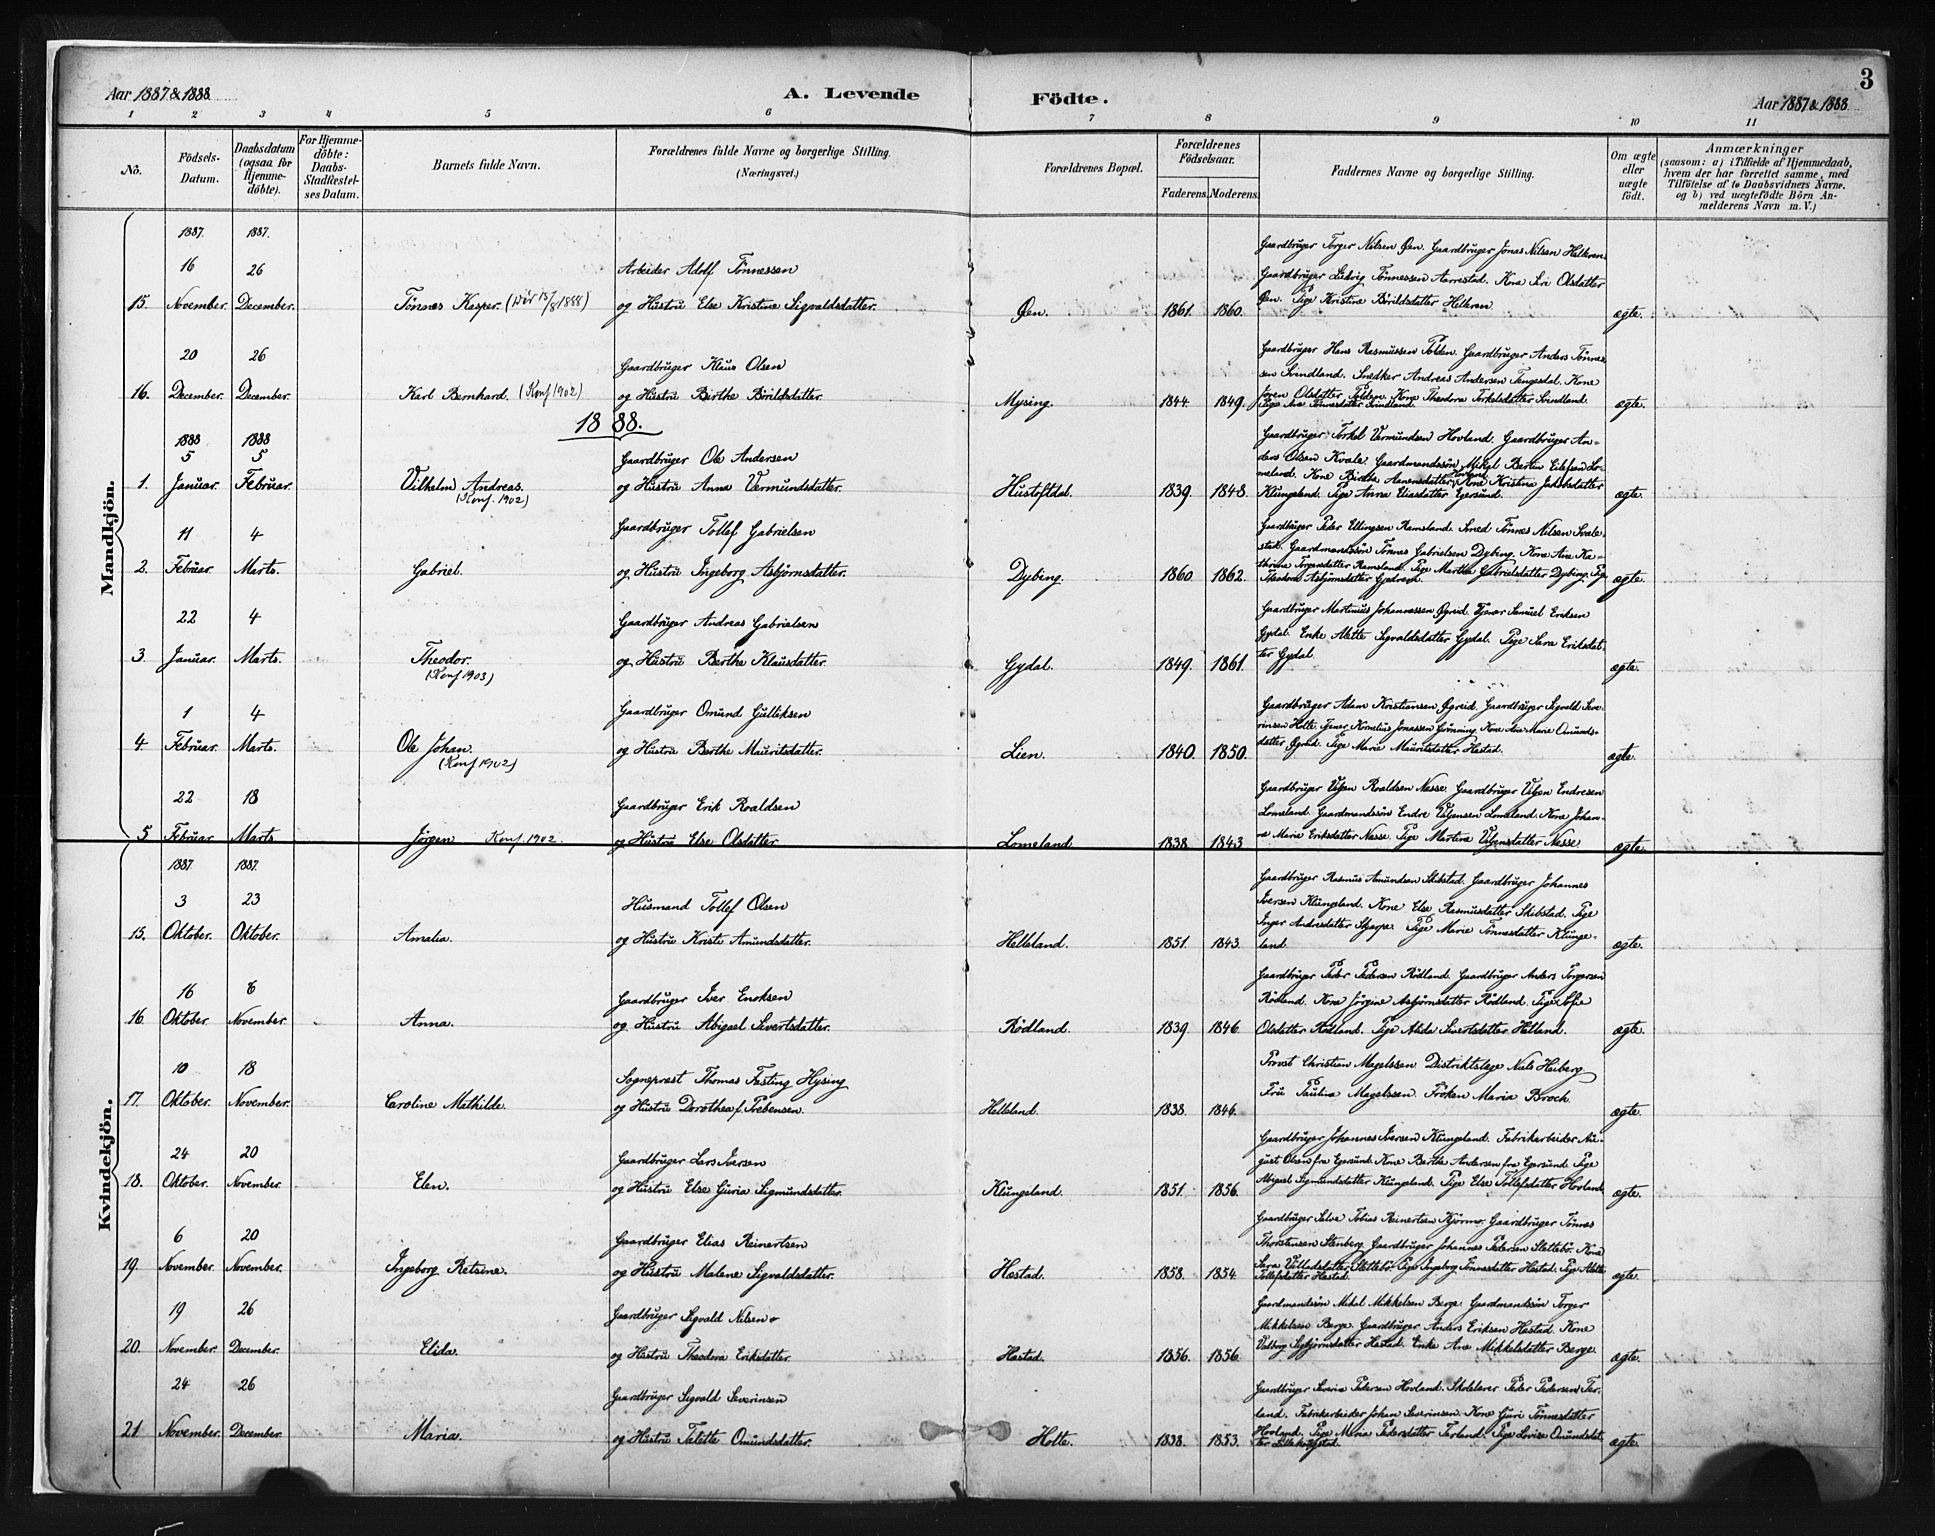 Aar 1887 & 1888
A. Levende Födte.
Aar 1887 & 1888
3
1 2 3 4 5 6 7 8 9 10 11
No.
Födsels-Datum.
Daabsdatum (ogsaa for Hjemmedöbte).
For Hjemmedöbte: Daabs-Stadfæstelses Datum.
Barnets fulde Navn.
Forældrenes fulde Navne og borgerlige Stilling.
(Næringsvei.)
Forældrenes Bopæl.
Forældrenes Födselsaar.
Faderens. Moderens.
Faddernes Navne og borgerlige Stilling.
Om ægte eller uægte födt.
Anmærkninger
(saasom: a) i Tilfælde af Hjemmedaab, hvem der har forrettet samme, med Tilföielse af to Daabsvidners Navne, og b) ved uægtefödte Börn Anmelderens Navn m. V.)
Mandkjön.
1887. 1887.
15. 16 November. 26 December. Tönnes Kasper. (Dör 15/8 1888) Arbeider Adolf Tönnessen
og Hustru Else Kristine Sigvaldsdatter. Öen. 1861. 1860. ægte.
Gaardbruger Torger Nilsen Öen. Gaardbruger Jonas Nilsen Helleren.
Gaardbruger Ludvig Tönnessen Aarrestad. Kone Siri Olsdatter
Öen. Pige Kristine Börildsdatter Helleren.
16. 20 December. 26 December. Karl Bernhard. (Konf 1902) Gaardbruger Klaus Olsen
og Hustru Birthe Börildsdatter. Mysing. 1844. 1849. ægte.
Gaardbruger Hans Rasmussen Tolden. Gaardbruger Anders Tönnes-
sen Svindland. Snedker Andreas Andersen Tengesdal. Kone
Jören Olsdatter Tolden. Kone Theodora Torkelsdatter Svindland.
Pige Ane Tönnesdatter Svindland.
1888.
1888 1888
1. 5 Januar. 5 Februar. Vilhelm Andreas. (Konf. 1902) Gaardbruger Ole Andersen
og Hustru Anna Vermundsdatter. Hustoftdal. 1839. 1848. ægte.
Gaardbruger Torkel Vermundsen Hovland. Gaardbruger An-
ders Olsen Kvale. Gaardmandssön Mikal Bertin Eilefsen Lo-
meland. Kone Birthe Aanensdatter Hovland. Kone Kristina Jakobsdatter
Klungeland. Pige Anna Eliasdatter Egersund.
2. 11 Februar. 4 Marts. Gabriel. Gaardbruger Tollef Gabrielsen
og Hustru Ingeborg Asbjörnsdatter. Dybing. 1860 1862. ægte.
Gaardbruger Peder Ellingsen Ramsland. Smed Tönnes Nilsen Svale-
stad. Gaardmandssön Tönnes Gabrielsen Dybing. Kone Ane Ka-
thrina Torgersdatter Ramsland. Pige Martha Gabrielsdatter Dybing. Pige
Theodora Asbjörnsdatter Gjedrem.
3. 22 Januar. 4 Marts. Theodor. (Konf 1903) Gaardbruger Andreas Gabrielsen
og Hustru Berthe Klausdatter. Gydal. 1849. 1861. ægte.
Gaardbruger Martinius Johannessen Ögreid. Tjener Samuel Eriksen
Gydal. Enke Alette Sigvaldsdatter Gydal. Pige Sara Eriksdat-
ter Gydal.
4 1 Februar. 4 Marts. Ole Johan. (Konf 1902) Gaardbruger Omund Gulliksen
og Hustru Berthe Mauritsdatter. Lien. 1840. 1850. ægte.
Gaardbruger Adam Kristiansen Ögreid. Gaardbruger Sigvald Seve-
rinsen Holte. Tjener Kornelius Jonassen Gjörning. Kone Ane Marie Omunds-
datter Ögreid. Pige Marie Mauritsdatter Hæstad.
5 22 Februar. 18 Marts. Jörgen Konf. 1902. Gaardbruger Erik Roaldsen
og Hustru Else Olsdatter. Lomeland 1838 1843 ægte.
Gaardbruger Roaldsen Næsse. Gaardbruger Endresen
Lomeland. Gaardmandssön Endre Lomeland. Kone Johan-
na Marie Eriksdatter Næsse. Pige Martine Næsse
Kvindekjön.
1887. 1887.
15. 3 Oktober. 23 Oktober. Amalia. Husmand Tollef Olsen
og Hustru Kristi Amundsdatter. Helleland. 1851. 1843. ægte.
Gaardbruger Rasmus Amundsen Skibstad. Gaardbruger Johannes
Iversen Klungland. Kone Else Rasmusdatter Skibstad. Pige
Inger Andrisdatter Skarpe. Pige Marie Tönnesdatter Klunge-
land.
16 16 Oktober. 6 November. Anna. Gaardbruger Iver Enoksen
og Hustru Abigael Sivertsdatter. Rödland. 1839 1846. ægte.
Gaardbruger Peder Pedersen Rödland. Gaardbruger Anders Torgersen
Rödland. Kone Jörgine Asbjörnsdatter Rödland. Pige Sofie
Olsdatter Rödland. Pige Alida Sivertsdatter Hetland.
17. 10 Oktober. 18 November. Caroline Mathilde. Sognepræst Thomas Fasting Hysing
og Hustru Dorothea f. Prebensen. Helleland. 1838. 1846. ægte.
Provst Christian Magelssen Distriktslæge Nils Heiberg
Fru Paulina Magelssen. Fröken Maria Broch.
18. 24 Oktober. 20 November. Elen. Gaardbruger Lars Iversen
og Hustru Else Guria Sigmundsdatter. Klungeland. 1851. 1856. ægte.
Gaardbruger Johannes Iversen Klungeland. Fabrikarbeider Au-
gust Olsen fra Egersund. Kone Berthe Andersen fra Egersund. Pige
Abigael Sigmundsdatter Klungeland. Pige Else Tollefsdatter Hovland.
19. 6 November. 20 November. Ingeborg Retsine. Gaardbruger Elias Reinertsen
og Hustru Malene Sigvaldsdatter. Hæstad. 1858. 1854. ægte.
Gaardbruger Selve Tobias Reinertsen Kjörmo. Gaardbruger Tönnes
Thorstensen Stenberg. Gaardbruger Johannes Pedersen Slettebö. Kone
Sara Villadsdatter Slettebö. Pige Ingeborg Tönnesdatter Hæstad. Pige Alette
Tollefsdatter Hæstad.
20. 19 November. 26 December. Elida. Gaardbruger Sigvald Nilsen
og Hustru Theodora Eriksdatter. Hæstad. 1856. 1856. ægte.
Gaardmandssön Mikal Mikkelsen Berge. Gaardmandssön Torger
Mikkelsen Berge. Gaardbruger Anders Eriksen Hæstad. Kone
Valborg Sigbjörnsdatter Hæstad. Enke Ane Mikkelsdatter Berge.
21 24 November. 26 December. Maria. Gaardbruger Sigvald Severinsen
og Hustru Talette Omundsdatter. Holte. 1838. 1853. ægte.
Gaardbruger Severin Pedersen Hovland. Skolelærer Peder Pedersen Ter-
land. Fabrikarbeider Johan Severinsen. Kone Guri Tönnesdatter
Hovland. Pige Maria Pedersdatter Terland. Pige Lovise Omundsdat-
ter